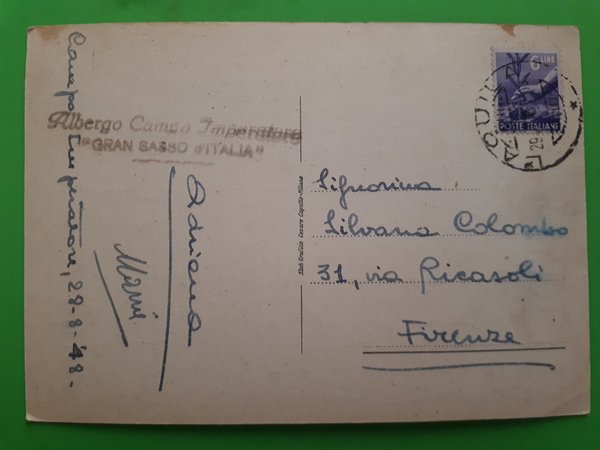 Campo Imperatore, 29-8-'48-
Albergo Campo Imperatore
"GRAN SASSO d'ITALIA"
Adriana
Stab. Grafico Cesare Capello-Milano
Signorina
Silvana Colombo
31, via Ricasoli
Firenze
6 LIRE
POSTE ITALIANE
AQUILA
29